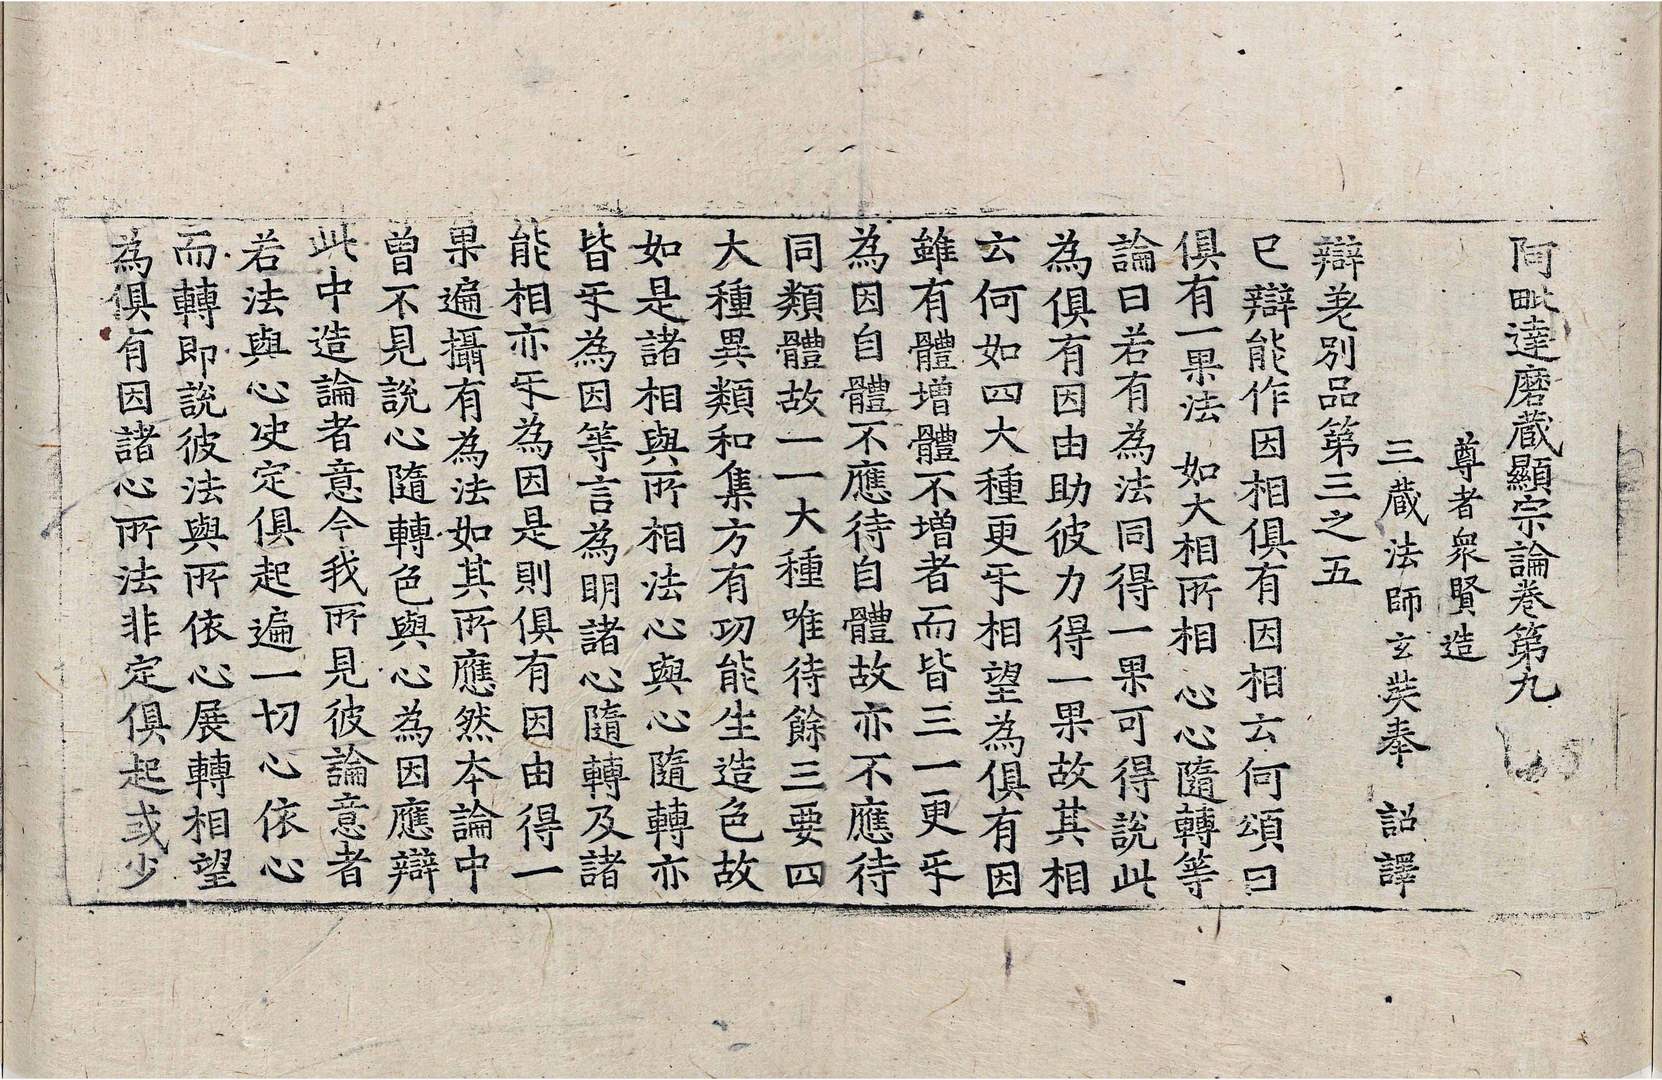 阿毗達磨藏顯宗論卷第九
尊者衆賢造
三藏法師玄奘奉 詔譯
辯差別品第三之五
已辯能作因相俱有因相云何頌曰
俱有一果法 如大相所相 心心隨轉等
論曰若有為法同得一果可得說此
為俱有因由助彼力得一果故其相
云何如四大種更㸦相望為俱有因
雖有體增體不增者而皆三一更㸦
為因自體不應待自體故亦不應待
同類體故一一大種唯待餘三要四
大種異類和集方有功能生造色故
如是諸相與所相法心與心隨轉亦
皆㸦為因等言為明諸心隨轉及諸
能相亦㸦為因是則俱有因由得一
果遍攝有為法如其所應然本論中
曾不見說心隨轉色與心為因應辯
此中造論者意今我所見彼論意者
若法與心决定俱起遍一切心依心
而轉即說彼法與所依心展轉相望
為俱有因諸心所法非定俱起或少